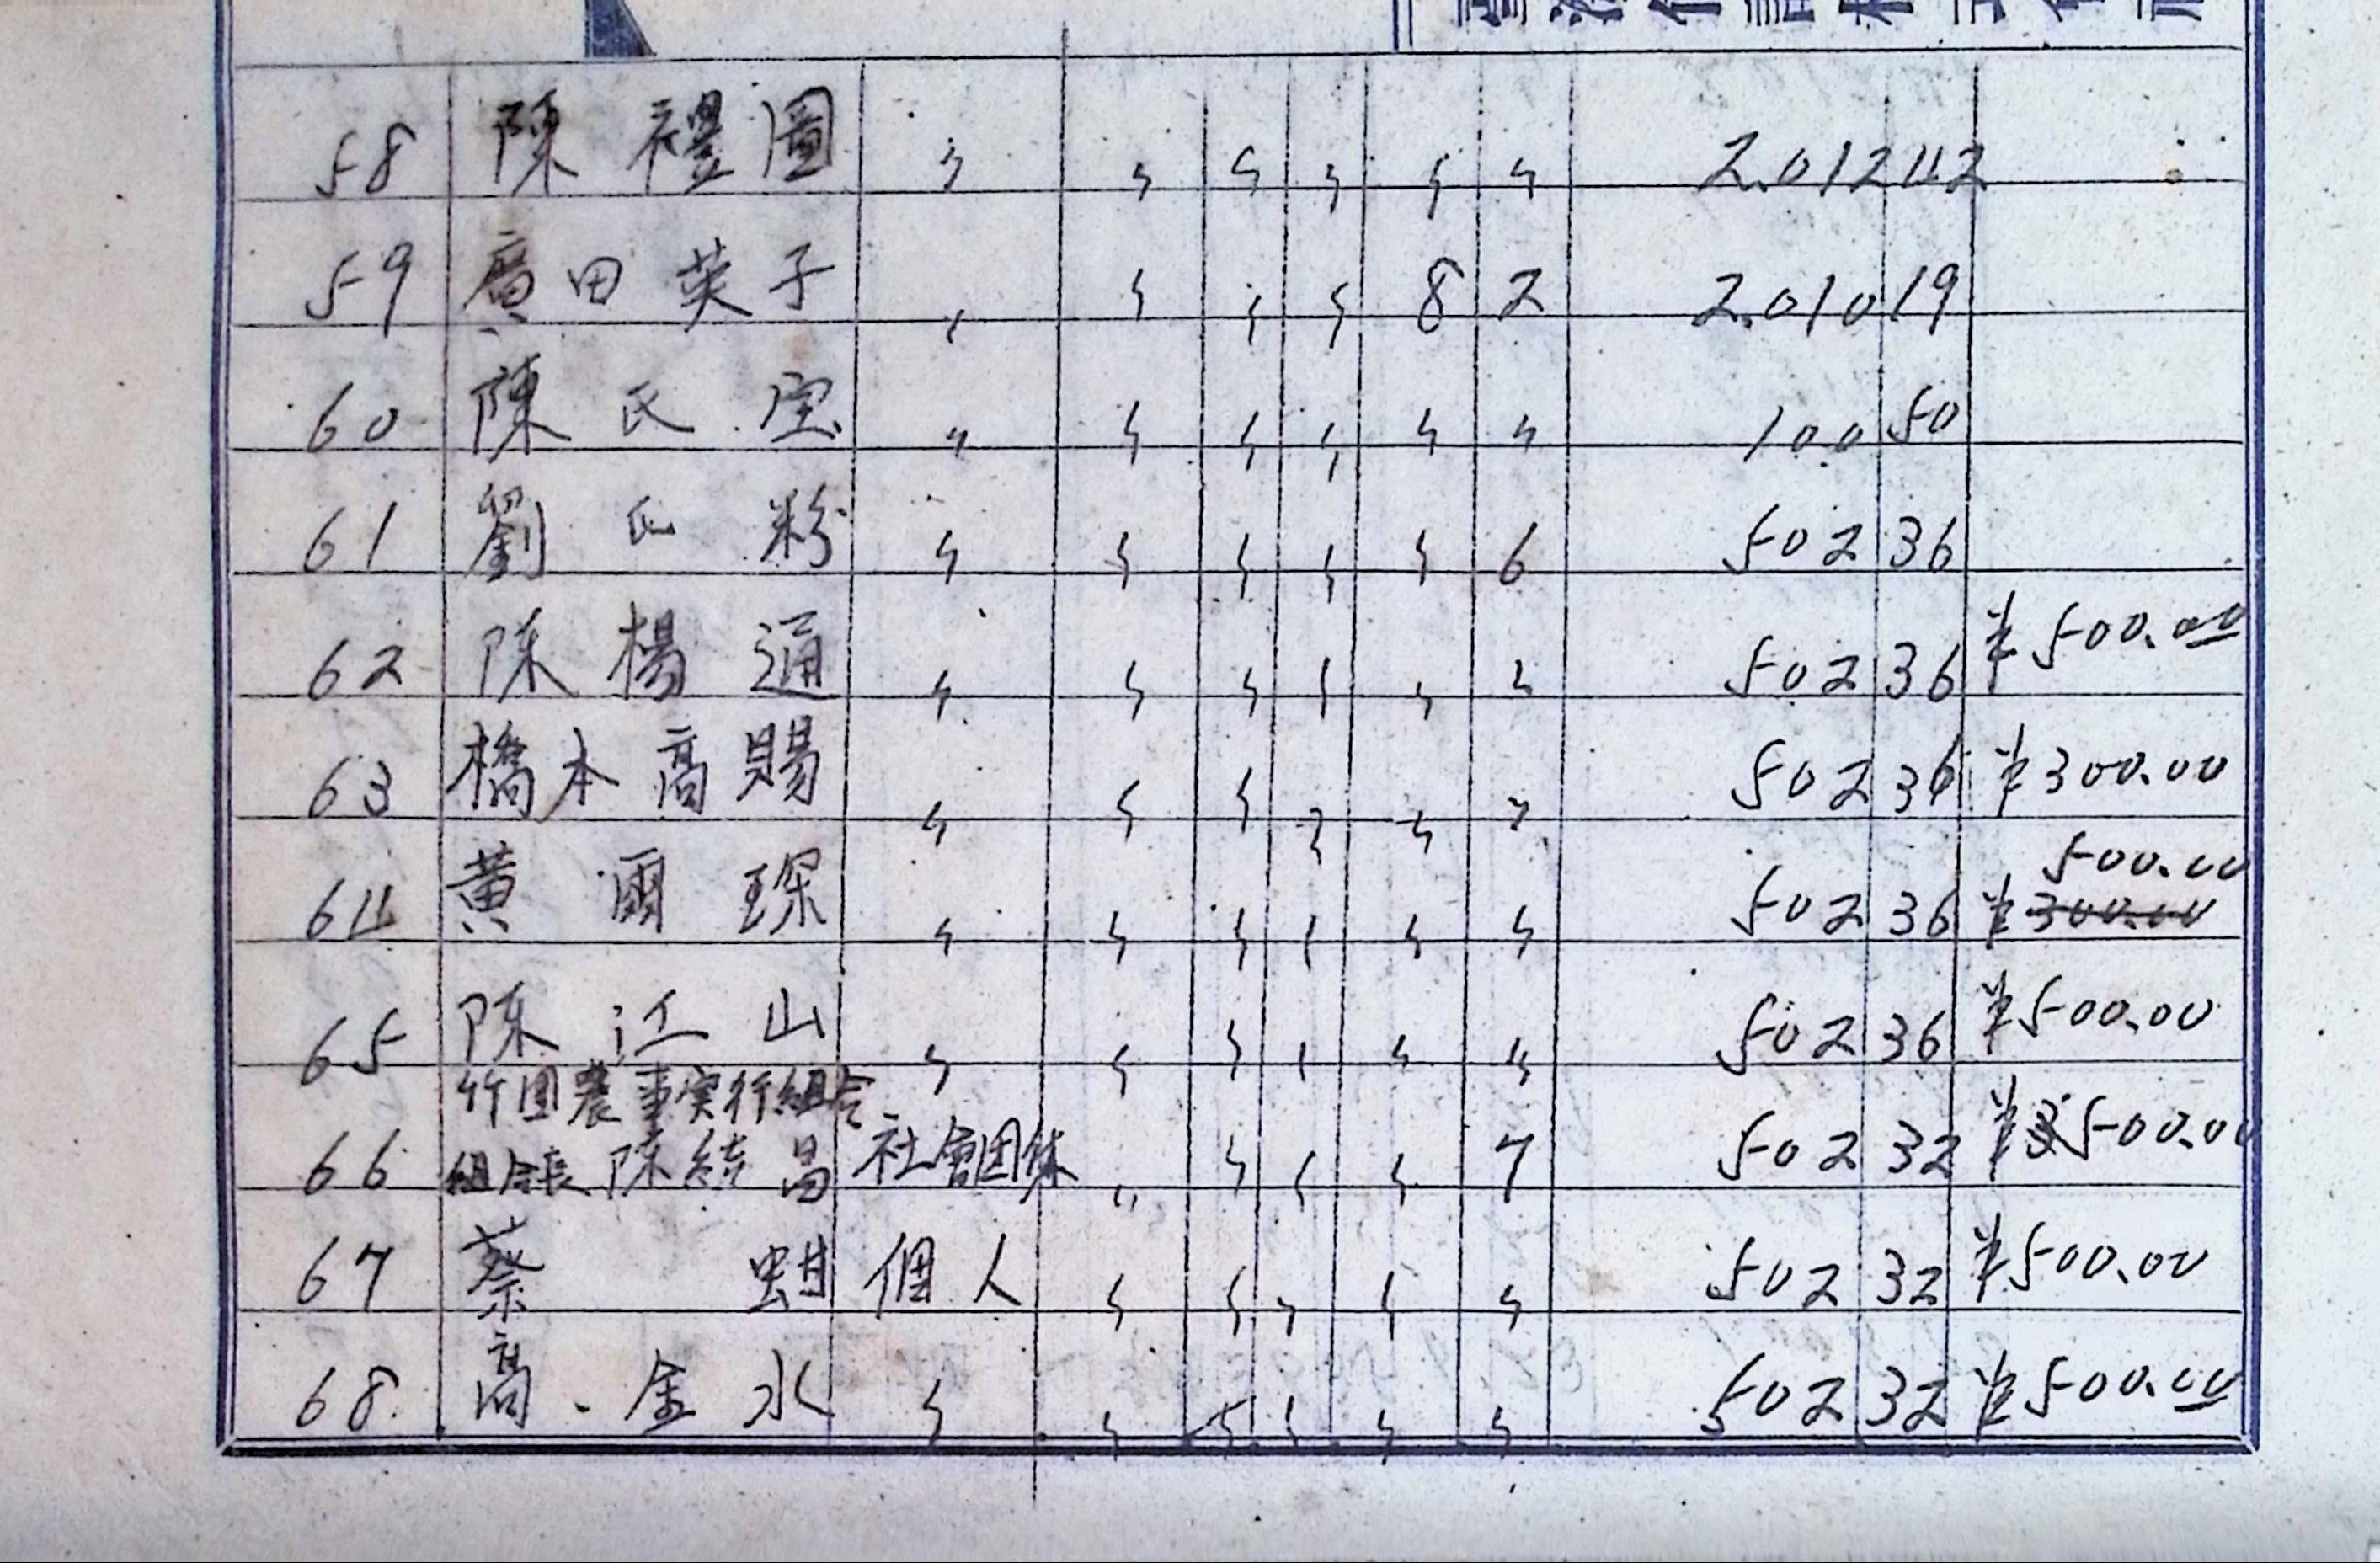 58 陳禮圖 〃 〃 〃 〃 〃 〃 2.012 42
59 廣田英子 〃 〃 〃 〃 8 2 2.010 19
60 陳氏宝 〃 〃 〃 〃 〃 〃 100 50
61 劉氏粉 〃 〃 〃 〃 〃 6 502 36
62 陳楊通 〃 〃 〃 〃 〃 〃 502 36 ¥500.00
63 橋本高賜 〃 〃 〃 〃 〃 〃 502 36 ¥300.00
500.00
64 黃爾琛 〃 〃 〃 〃 〃 〃 502 36 ¥300.00
65 陳江山 〃 〃 〃 〃 〃 〃 502 36 ¥500.00
竹圍農事実行組合
66 組合長 陳結昌 社會団体 〃 〃 〃 〃 7 502 32 ¥500.00
67 蔡蚶 個人 〃 〃 〃 〃 〃 502 32 ¥500.00
68 高金水 〃 〃 〃 〃 〃 〃 502 32 ¥500.00